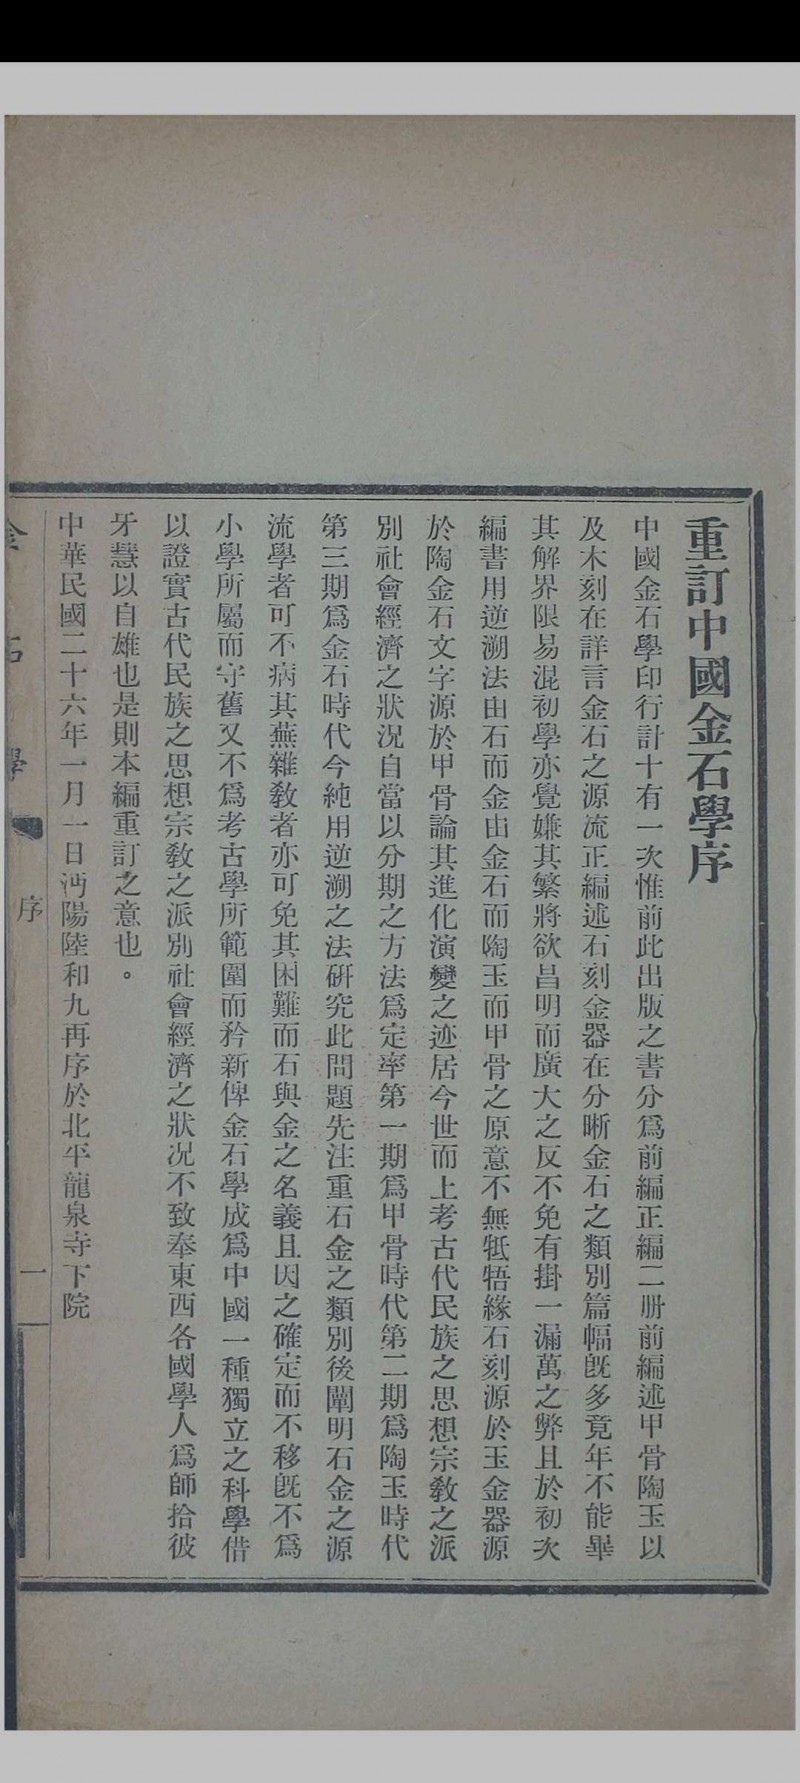 重訂中國金石學序
中國金石學印行計十有一次惟前此出版之書分爲前編正編二册前編述甲骨陶玉以
及木刻在詳言金石之源流正編述石刻金器在分晰金石之類別篇幅旣多竟年不能畢
其解界限易混初學亦覺嫌其繁將欲昌明而廣大之反不免有掛一漏萬之弊且於初次
編書用逆溯法由石而金由金石而陶玉而甲骨之原意不無牴牾緣石刻源於玉金器源
於陶金石文字源於甲骨論其進化演變之迹居今世而上考古代民族之思想宗敎之派
別社會經濟之狀況自當以分期之方法爲定率第一期爲甲骨時代第二期爲陶玉時代
第三期爲金石時代今純用逆溯之法硏究此問題先注重石金之類別後闡明石金之源
流學者可不病其蕪雜敎者亦可免其困難而石與金之名義且因之確定而不移旣不爲
小學所屬而守舊又不爲考古學所範圍而矜新俾金石學成爲中國一種獨立之科學借
以證實古代民族之思想宗敎之派別社會經濟之狀况不致奉東西各國學人爲師拾彼
牙慧以自雄也是則本編重訂之意也。
中華民國二十六年一月一日沔陽陸和九再序於北平龍泉寺下院
金石學 序 一